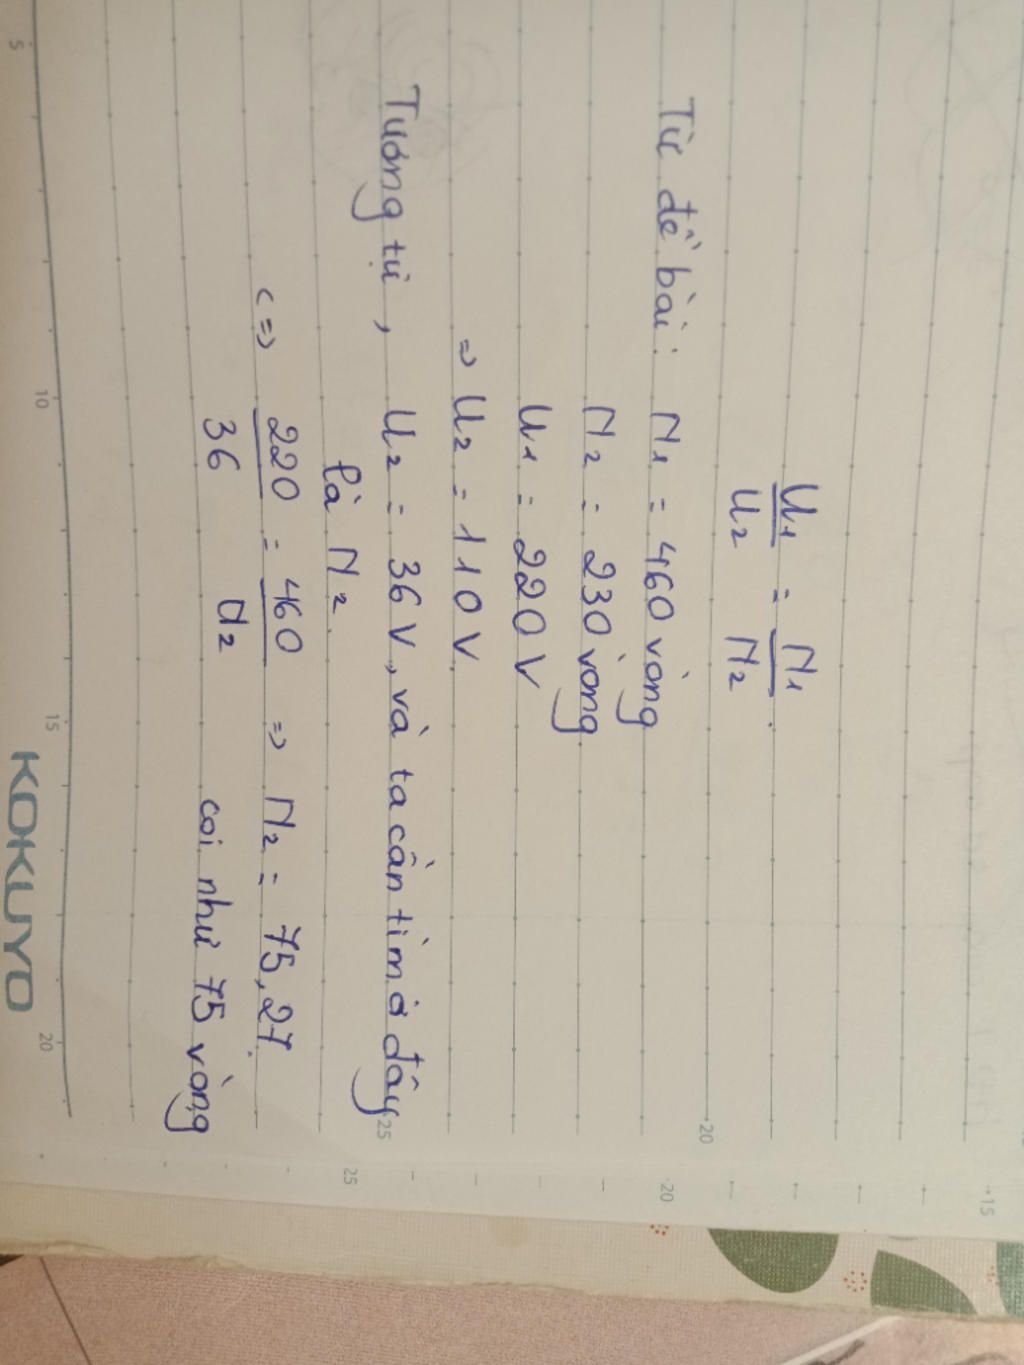 U₁/U₂ = N₁/N₂.
Từ đề bài: N₁ = 460 vòng
N₂ = 230 vòng
U₁ = 220 V
=> U₂ = 110 V.
Tương tự, U₂ = 36 V, và ta cần tìm ở đây
là N₂
<=> 220/36 = 460/N₂ => N₂ = 75,27
coi như 75 vòng
KOKUYO
5
10
15
20
15
20
25
20
25